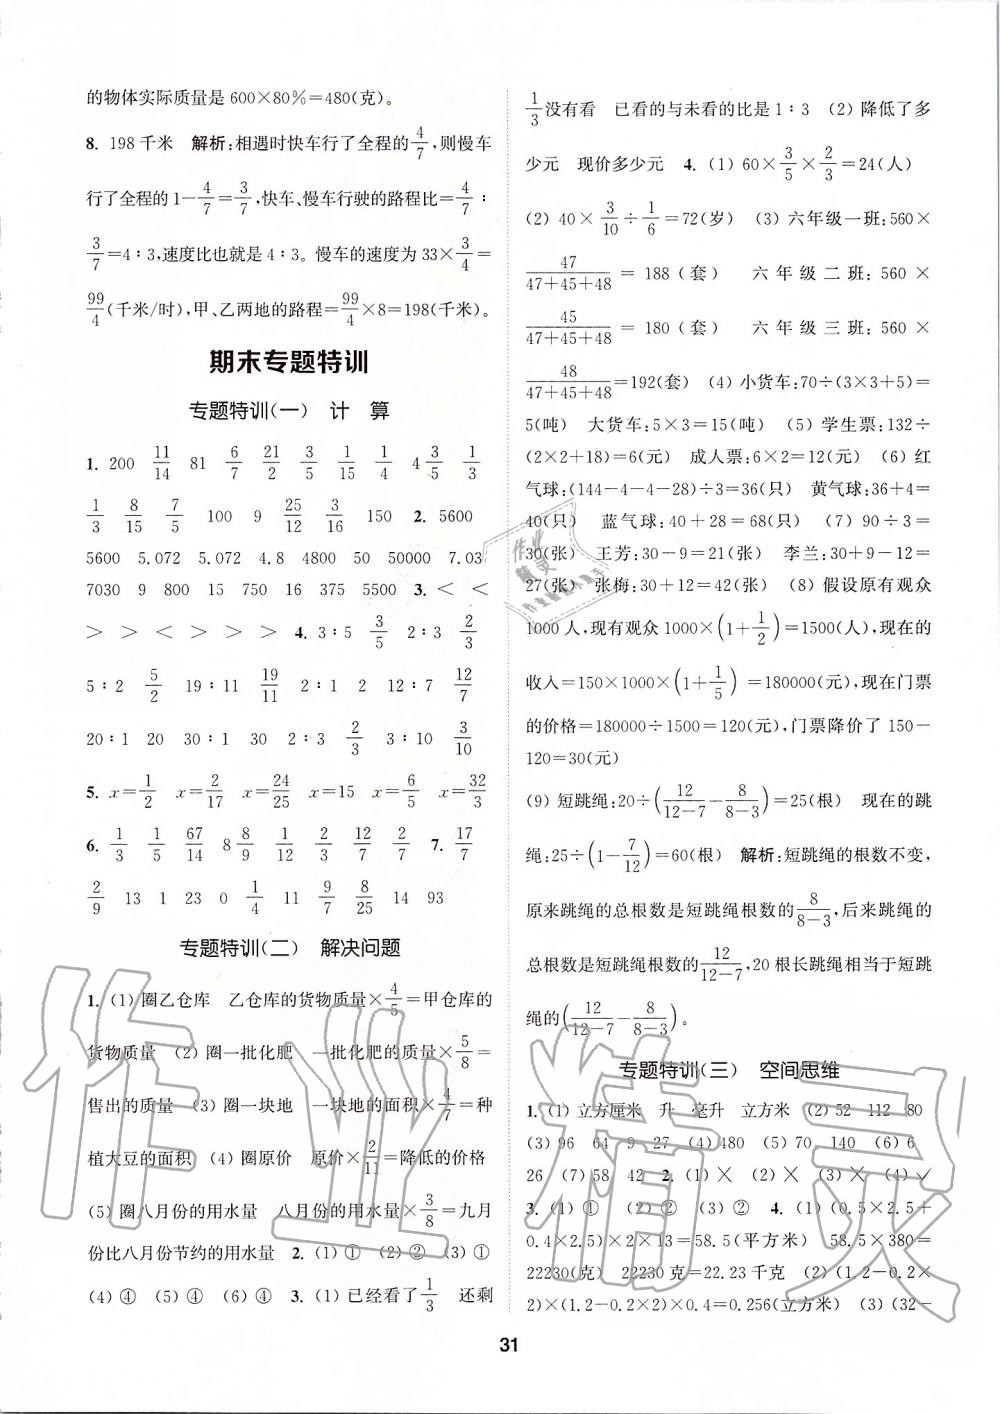 的物体实际质量是 600×80%=480(克)。
8. 198 千米 解析:相遇时快车行了全程的4/7,则慢车
行了全程的 1−4/7=3/7,快车、慢车行驶的路程比=4/7∶
3/7=4∶3,速度比也就是 4∶3。慢车的速度为 33×3/4=
99/4(千米/时),甲、乙两地的路程=99/4×8=198(千米)。
期末专题特训
专题特训(一) 计 算
1. 200 11/14 81 6/7 21/2 3/5 1/15 1/4 4 3/5 1/3
1/3 8/15 7/5 100 9 25/12 3/16 150 2. 5600
5600 5.072 5.072 4.8 4800 50 50000 7.03
7030 9 800 15 750 16 375 5500 3. < <
> > < > > > 4. 3∶5 3/5 2∶3 2/3
5∶2 5/2 19∶11 19/11 2∶1 2 12∶7 12/7
20∶1 20 30∶1 30 2∶3 2/3 3∶10 3/10
5. x=1/2 x=2/17 x=24/25 x=15 x=6/5 x=32/3
6. 1/3 1/5 67/14 8 8/9 1/12 2/3 12/7 2/7 7. 17/7
2/9 13 1 23 0 1/4 11 9/7 8/25 14 93
专题特训(二) 解决问题
1. (1) 圈乙仓库 乙仓库的货物质量×4/5=甲仓库的
货物质量 (2) 圈一批化肥 一批化肥的质量×5/8=
售出的质量 (3) 圈一块地 一块地的面积×4/7=种
植大豆的面积 (4) 圈原价 原价×2/11=降低的价格
(5) 圈八月份的用水量 八月份的用水量×3/8=九月
份比八月份节约的用水量 2. (1) ① (2) ② (3) ①
(4) ④ (5) ④ (6) ④ 3. (1) 已经看了1/3 还剩
1/3没有看 已看的与未看的比是 1∶3 (2) 降低了多
少元 现价多少元 4. (1) 60×3/5×2/3=24(人)
(2) 40×3/10÷1/6=72(岁) (3) 六年级一班:560×
47/47+45+48=188(套) 六年级二班:560×
45/47+45+48=180(套) 六年级三班:560×
48/47+45+48=192(套) (4) 小货车:70÷(3×3+5)=
5(吨) 大货车:5×3=15(吨) (5) 学生票:132÷
(2×2+18)=6(元) 成人票:6×2=12(元) (6) 红
气球:(144−4−4−28)÷3=36(只) 黄气球:36+4=
40(只) 蓝气球:40+28=68(只) (7) 90÷3=
30(张) 王芳:30−9=21(张) 李兰:30+9−12=
27(张) 张梅:30+12=42(张) (8) 假设原有观众
1000 人,现有观众 1000×(1+1/2)=1500(人),现在的
收入=150×1000×(1+1/5)=180000(元),现在门票
的价格=180000÷1500=120(元),门票降价了 150−
120=30(元)
(9) 短跳绳:20÷(12/12−7−8/8−3)=25(根) 现在的跳
绳:25÷(1−7/12)=60(根) 解析:短跳绳的根数不变,
原来跳绳的总根数是短跳绳根数的8/8−3,后来跳绳的
总根数是短跳绳根数的12/12−7,20 根长跳绳相当于短跳
绳的(12/12−7−8/8−3)。
专题特训(三) 空间思维
1. (1) 立方厘米 升 毫升 立方米 (2) 52 112 80
(3) 96 64 9 27 (4) 480 (5) 70 140 (6) 6
26 (7) 58 42 2. (1) × (2) × (3) × (4) √
3. (1) ① (2) ② (3) ② 4. (1) (0.5×2.5+
0.4×2.5)×2×13=58.5(平方米) 58.5×380=
22230(克) 22230 克=22.23 千克 (2) (1.2−0.2×
2)×(1.2−0.2×2)×0.4=0.256(立方米) (3) (32−
31
作业精灵